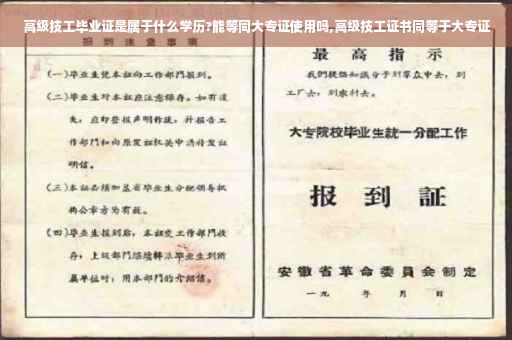 高级技工毕业证是属于什么学历?能等同大专证使用吗,高级技工证书同等于大专证
报到注意事项
(一)毕业生凭本证向工作部门报到。
(二)毕业生对本证应注意保存。如有遗
失，应即登报声明作废，并报告工
作部门和向原发证机关申请补发证
明信。
(三)本证必须加盖省毕业生分配领导机
构公章方为有效。
(四)毕业生报到后，本证交工作部门收
存；上级部门继续转派毕业生到所
属单位时，用本部门的介绍信。
最高指示
我们提倡知识分子到群众中去，到
工厂去，到农村去。
大专院校毕业生統一分配工作
报到証
安徽省革命委員会制定
一九 年 月 日